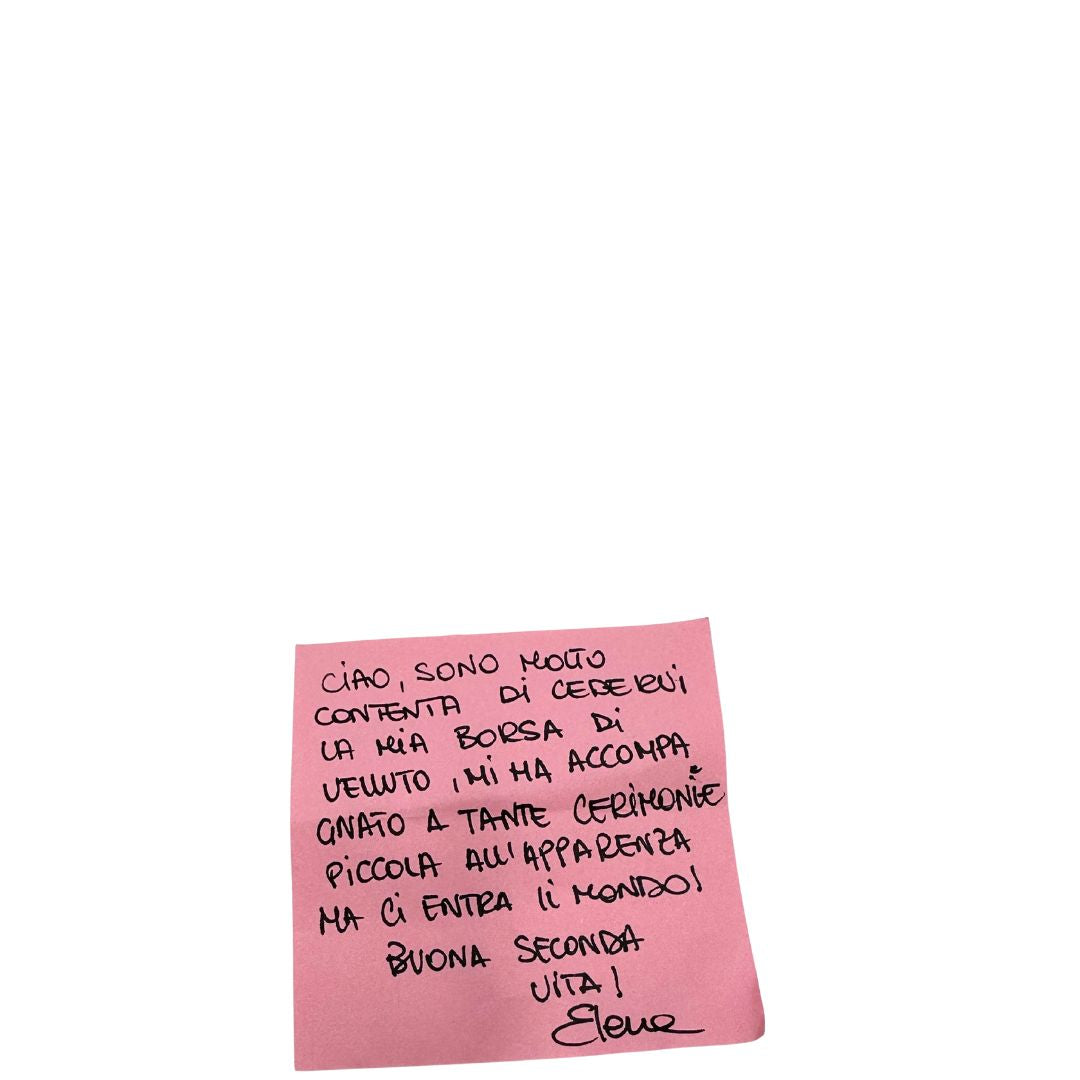 CIAO, SONO MOLTO
CONTENTA DI CEDERVI
LA MIA BORSA DI
VELLUTO, MI HA ACCOMPA
GNATO A TANTE CERIMONIE È
PICCOLA ALL'APPARENZA
MA CI ENTRA IL MONDO!
BUONA SECONDA
VITA!
Elena